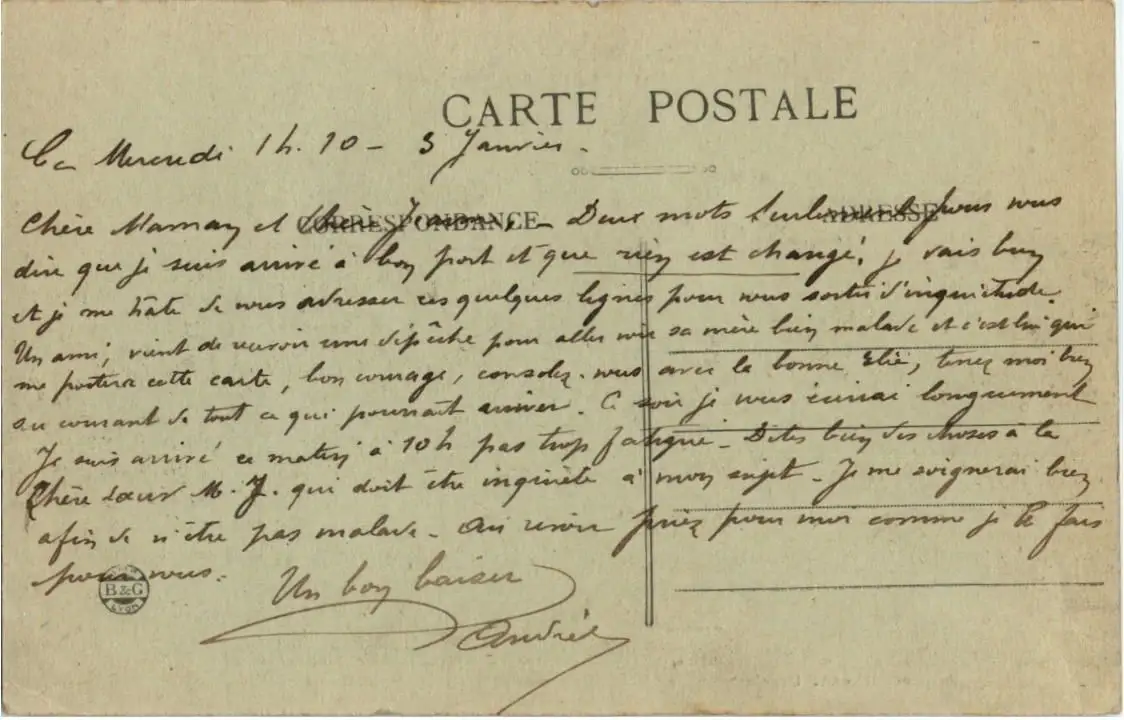 CARTE POSTALE
Ce Mercredi 1h.10 - 3 Janvier.
CORRESPONDANCE
ADRESSE
Chère Maman et Chère Jeanne, - Deux mots seulement pour vous
dire que je suis arrivé à bon port et que rien est changé, je vais bien
et je me hâte de vous adresser ces quelques lignes pour vous sortir d'inquiétude.
Un ami, vient de recevoir une dépêche pour aller voir sa mère bien malade et c'est lui qui
me postera cette carte, bon courage, consolez-vous avec la bonne Elie, tenez moi bien
au courant de tout ce qui pourrait arriver. Ce soir je vous écrirai longuement
Je suis arrivé ce matin à 10h pas trop fatigué - Dites bien des choses à la
Chère Sœur M. J. qui doit être inquiète à mon sujet - Je me soignerai bien
afin de n'être pas malade - Au revoir priez pour moi comme je le fais
pour vous.
B&G
LYON
Un bon baiser
André